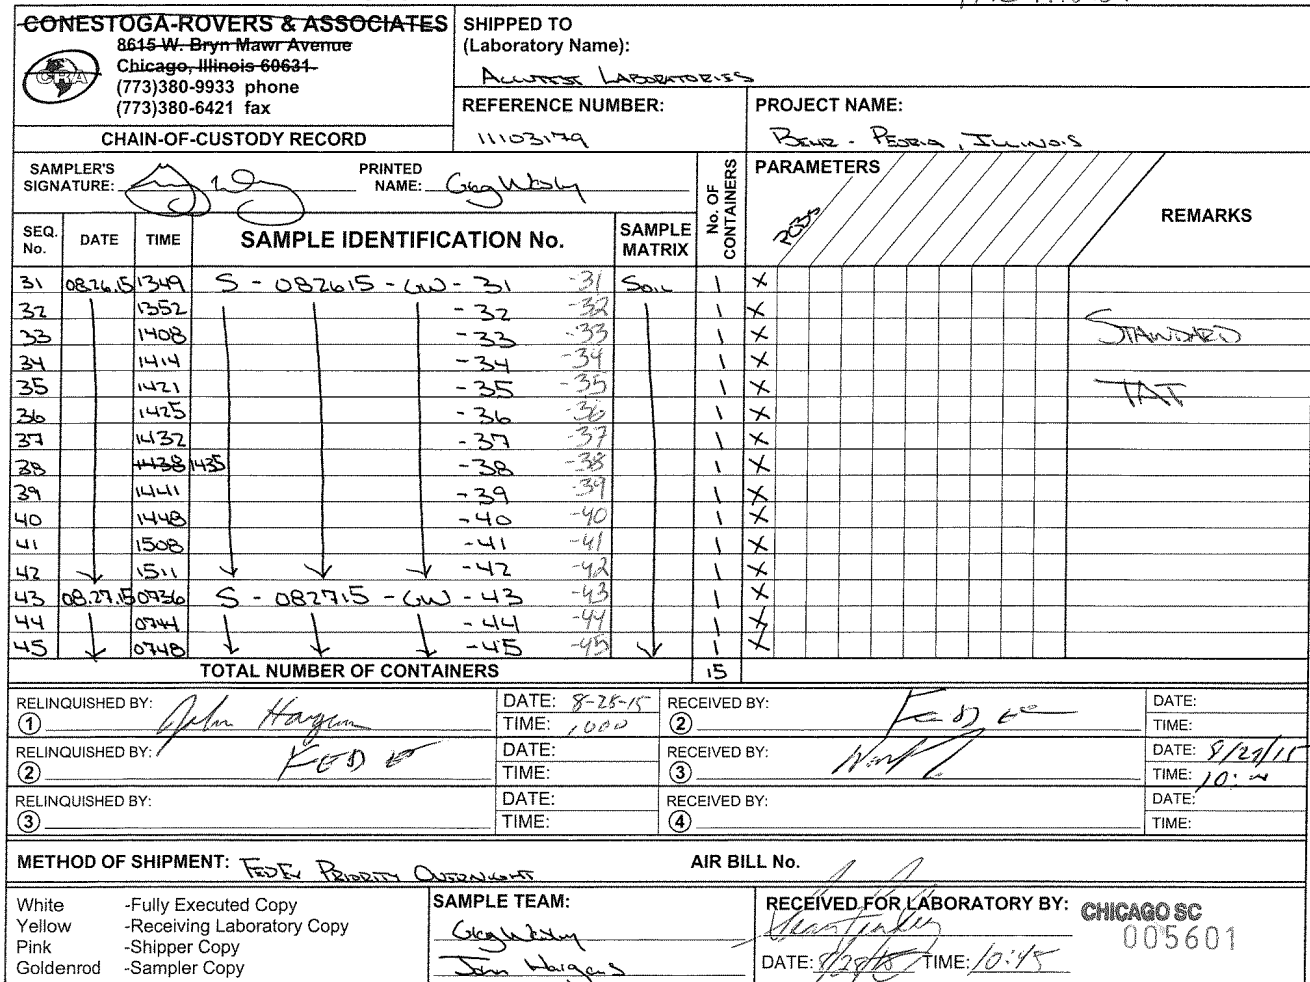 CONESTOGA-ROVERS & ASSOCIATES
8615 W. Bryn Mawr Avenue
Chicago, Illinois 60631
(773)380-9933 phone
(773)380-6421 fax
CRA
CHAIN-OF-CUSTODY RECORD
SHIPPED TO
(Laboratory Name):
ACCUTEST LABORATORIES
REFERENCE NUMBER:
11103179
PROJECT NAME:
BEHR - PEORIA, ILLINOIS
SAMPLER'S SIGNATURE:
PRINTED NAME: Greg Wesley
SEQ. No. DATE TIME SAMPLE IDENTIFICATION No. SAMPLE MATRIX No. OF CONTAINERS PARAMETERS REMARKS
PCBs
31 08.26.15 1349 S - 082615 - GW - 31 -31 SOIL 1 X
32 1352 - 32 -32 1 X
33 1408 - 33 -33 1 X STANDARD
34 1414 - 34 -34 1 X
35 1421 - 35 -35 1 X TAT
36 1425 - 36 -36 1 X
37 1432 - 37 -37 1 X
38 1438 1435 - 38 -38 1 X
39 1441 - 39 -39 1 X
40 1448 - 40 -40 1 X
41 1508 - 41 -41 1 X
42 1511 - 42 -42 1 X
43 08.27.15 0736 S - 082715 - GW - 43 -43 1 X
44 0744 - 44 -44 1 X
45 0748 - 45 -45 1 X
TOTAL NUMBER OF CONTAINERS 15
RELINQUISHED BY: DATE: 8-28-15 RECEIVED BY: FEDEX DATE:
1 John Hargens TIME: 1000 2 TIME:
RELINQUISHED BY: FEDEX DATE: RECEIVED BY: DATE:
2 TIME: 3 TIME:
RELINQUISHED BY: DATE: RECEIVED BY: DATE:
3 TIME: 4 TIME:
METHOD OF SHIPMENT: FEDEX PRIORITY OVERNIGHT AIR BILL No.
White -Fully Executed Copy
Yellow -Receiving Laboratory Copy
Pink -Shipper Copy
Goldenrod -Sampler Copy
SAMPLE TEAM:
Greg Wesley
John Hargens
RECEIVED FOR LABORATORY BY:
DATE: 8/28/15 TIME: 10:45
CHICAGO SC
005601